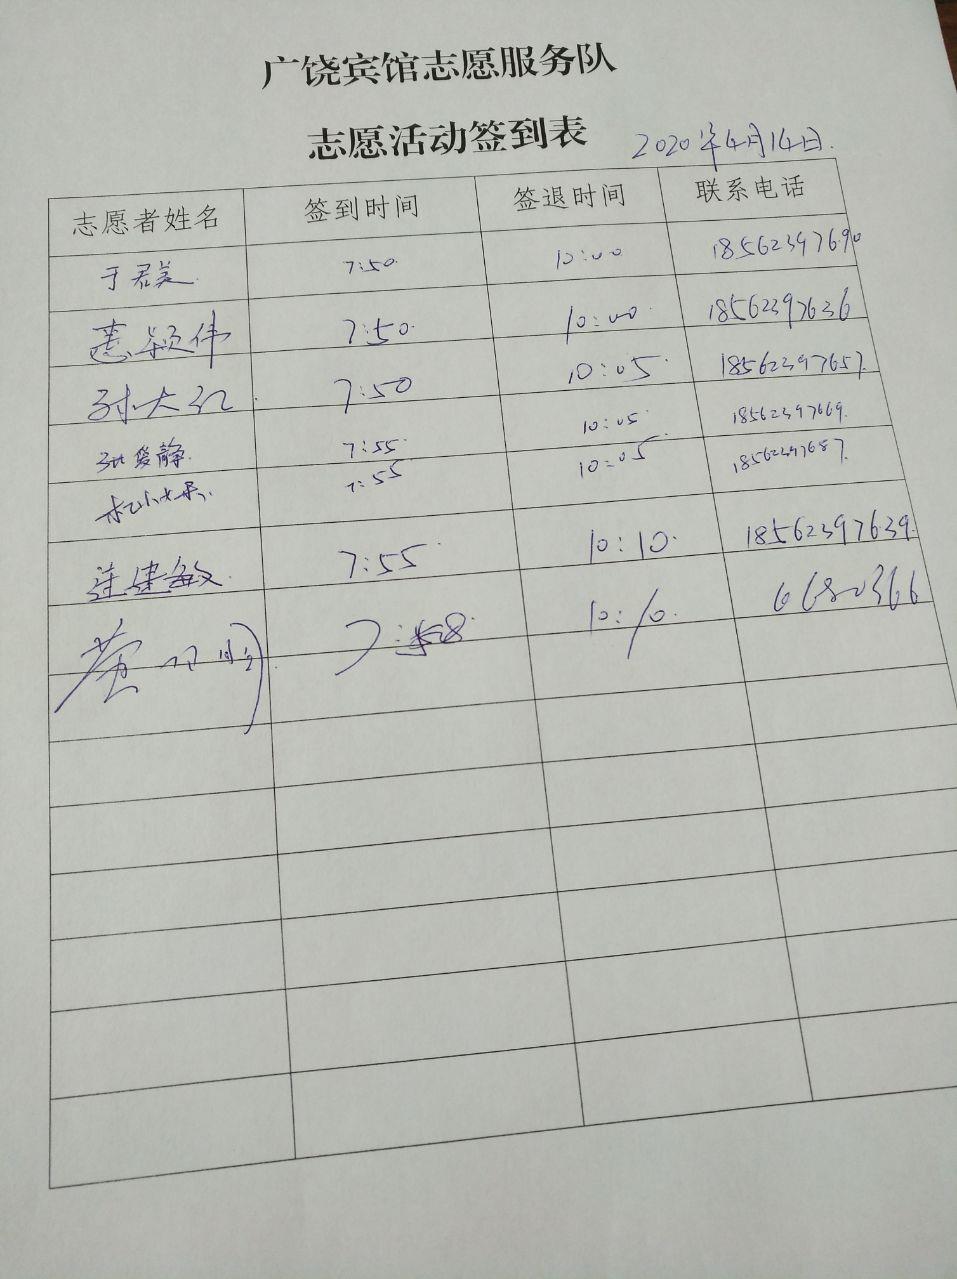 广饶宾馆志愿服务队
志愿活动签到表
2020年4月14日.
志愿者姓名 签到时间 签退时间 联系电话
于君美 7:50 10:00 18562397690
惠颖伟 7:50 10:00 18562397636
孙大红 7:50 10:05 18562397657
张爱静 7:55 10:05 18562397669
7:55 10:05 18562397687
连建敏 7:55 10:10 18562397639
7:58 10:10 6680366